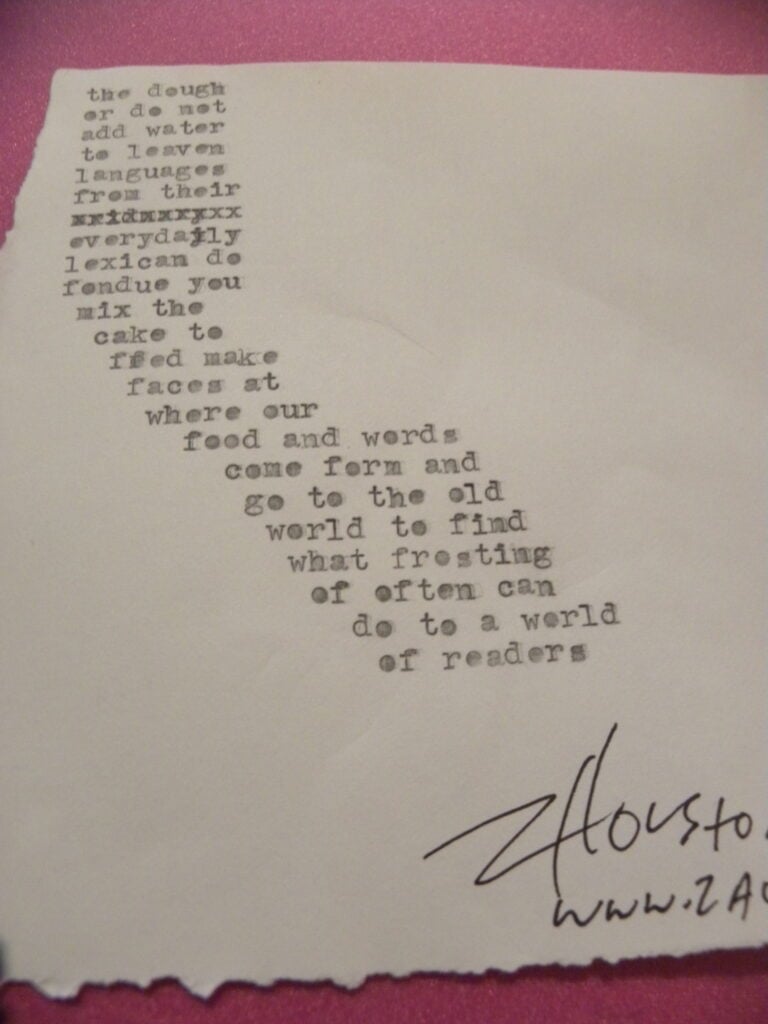 the dough
or do not
add water
to leaven
languages
from their
everydaily
lexican do
fondue you
mix the
cake to
feed make
faces at
where our
food and words
come form and
go to the old
world to find
what frosting
of often can
do to a world
of readers
ZHousto
www.ZAC